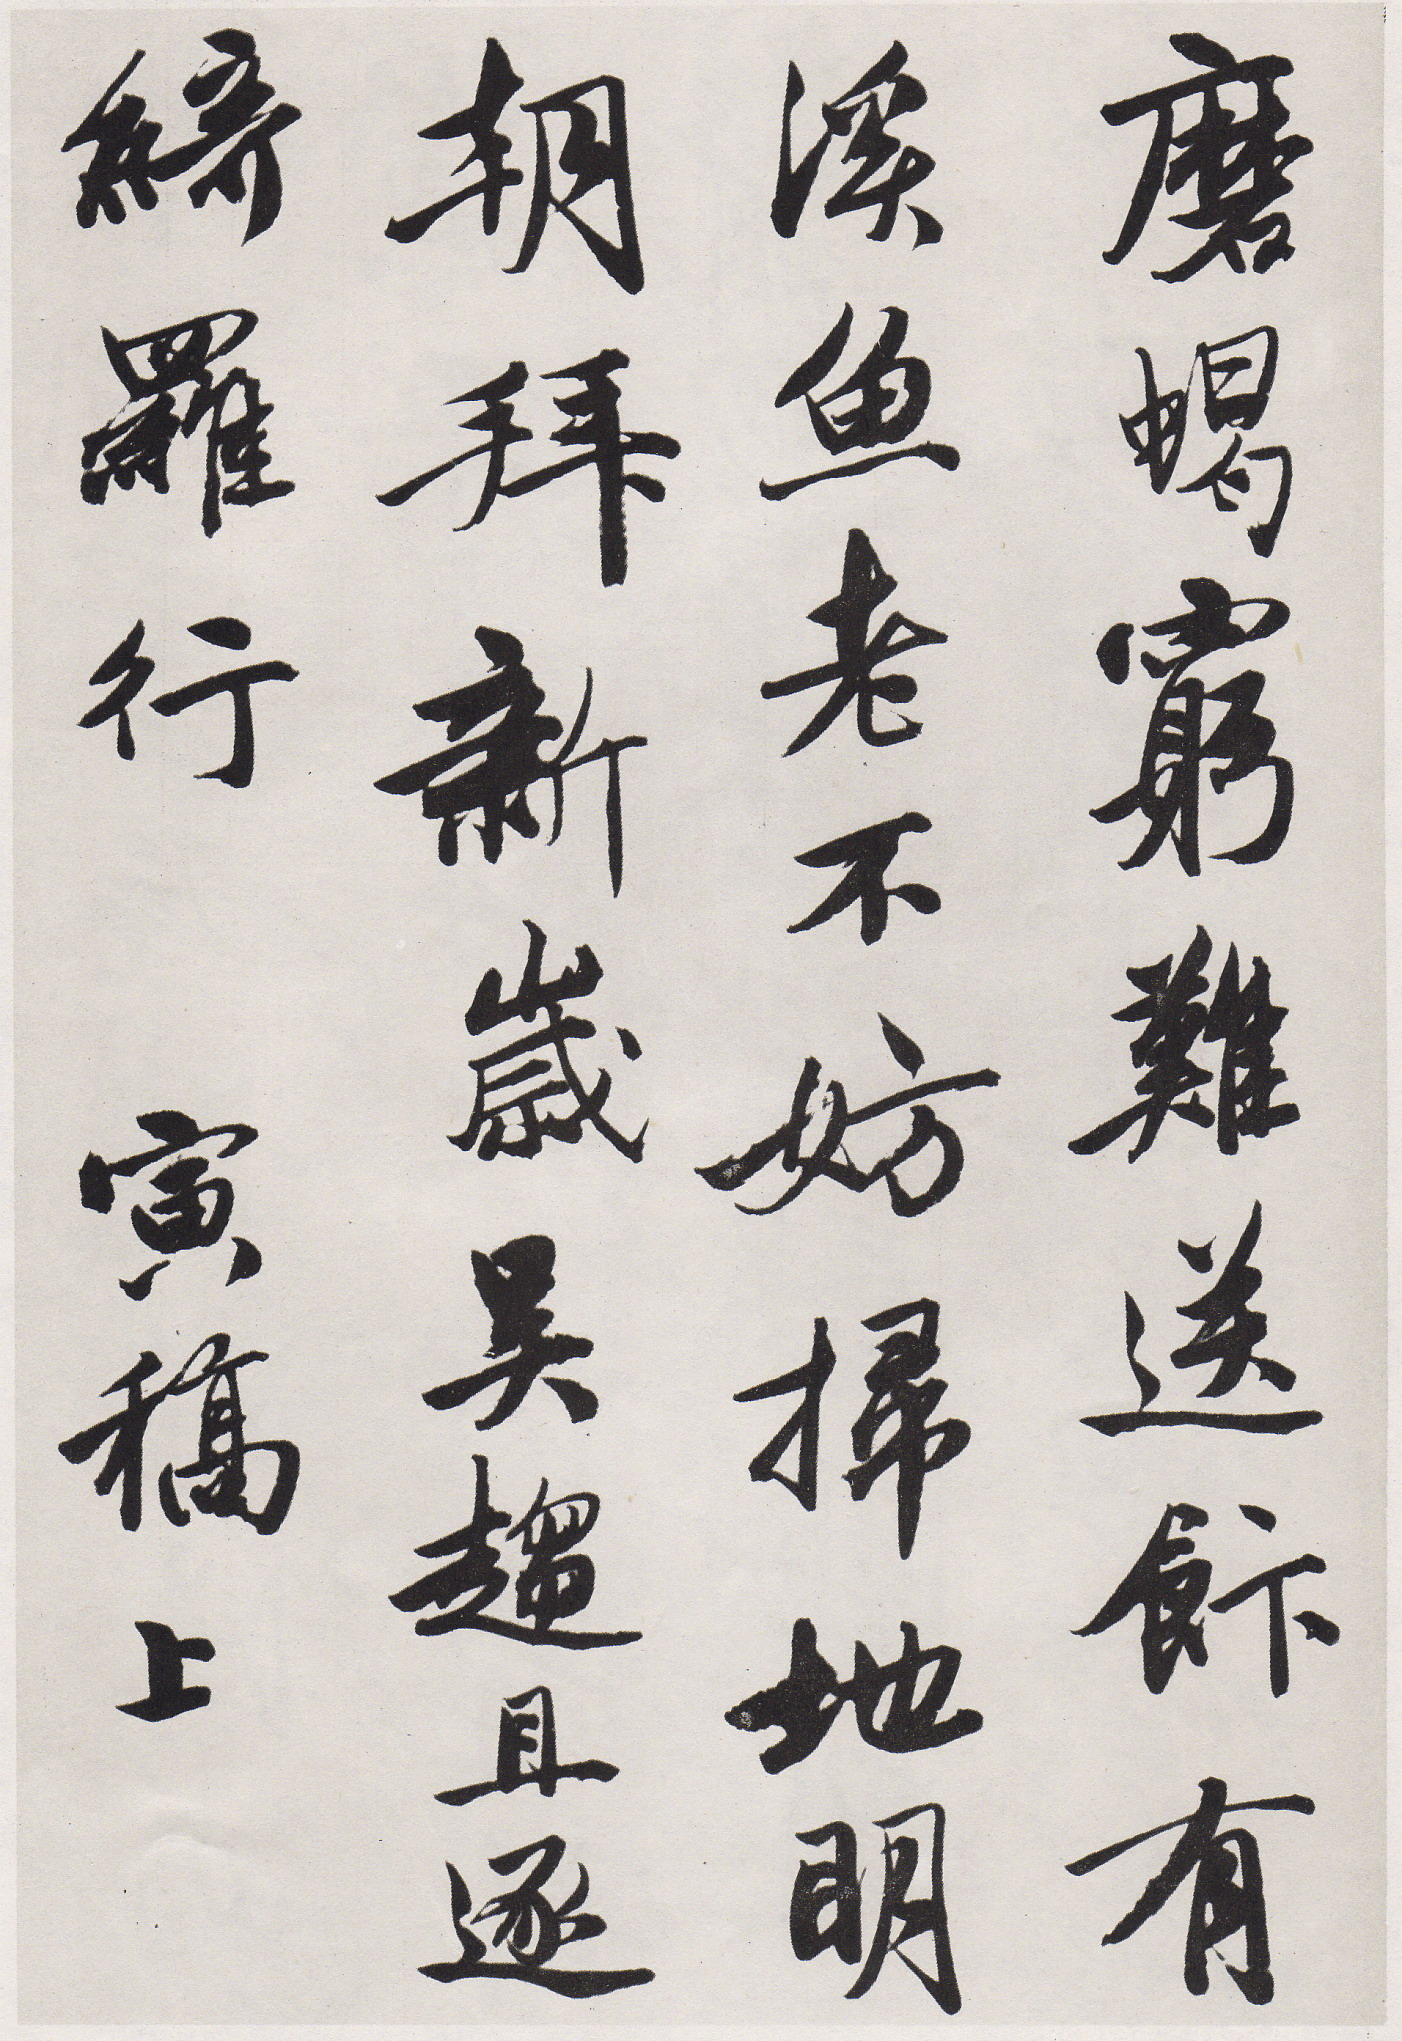 磨蝎窮難送飰有
溪魚老不妨掃地明
朝拜新歲吴趨且逐
綺羅行 寅稿上